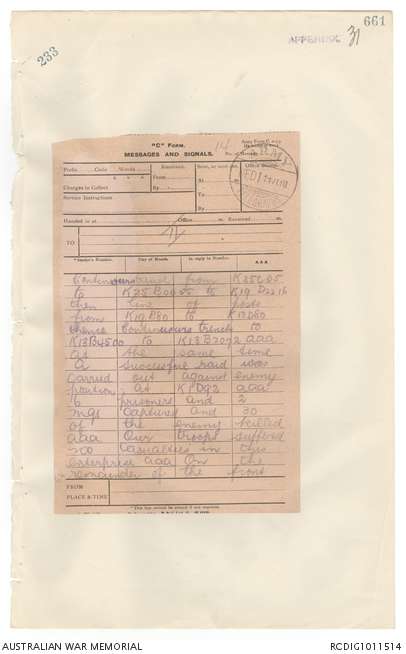 661
233
APPENDIX 31
"C" FORM.
MESSAGES AND SIGNALS.
14
Army Form C. 2123
Prefix Code Words
Received.
Sent, or sent out.
Office Stamp.
From
At m.
Charges to Collect
By
To
Service Instructions
By
Handed in at Office m. Received m.
TO
*Sender's Number.
Day of Month.
In reply to Number.
AAA
Continuous trench from K25C05
to K25B0955 to K19D2216
then line of posts
from K19B80 to K13D80
thence continuous trench to
K13B4500 to K13B7092 aaa
At the same time
a successful raid was
carried out against enemy
position at aaa
6 prisoners and 2
mgs captured and 30
of the enemy killed
aaa Our troops suffered
no casualties in this
enterprise aaa On the
remainder of the front
FROM
PLACE & TIME
AUSTRALIAN WAR MEMORIAL
RCDIG1011514